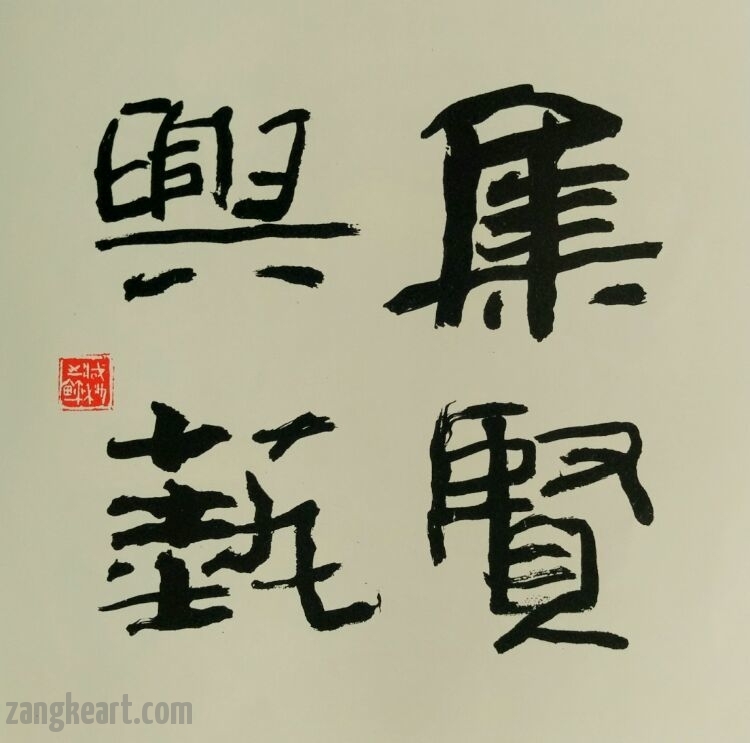 集賢
興藝
zangkeart.com